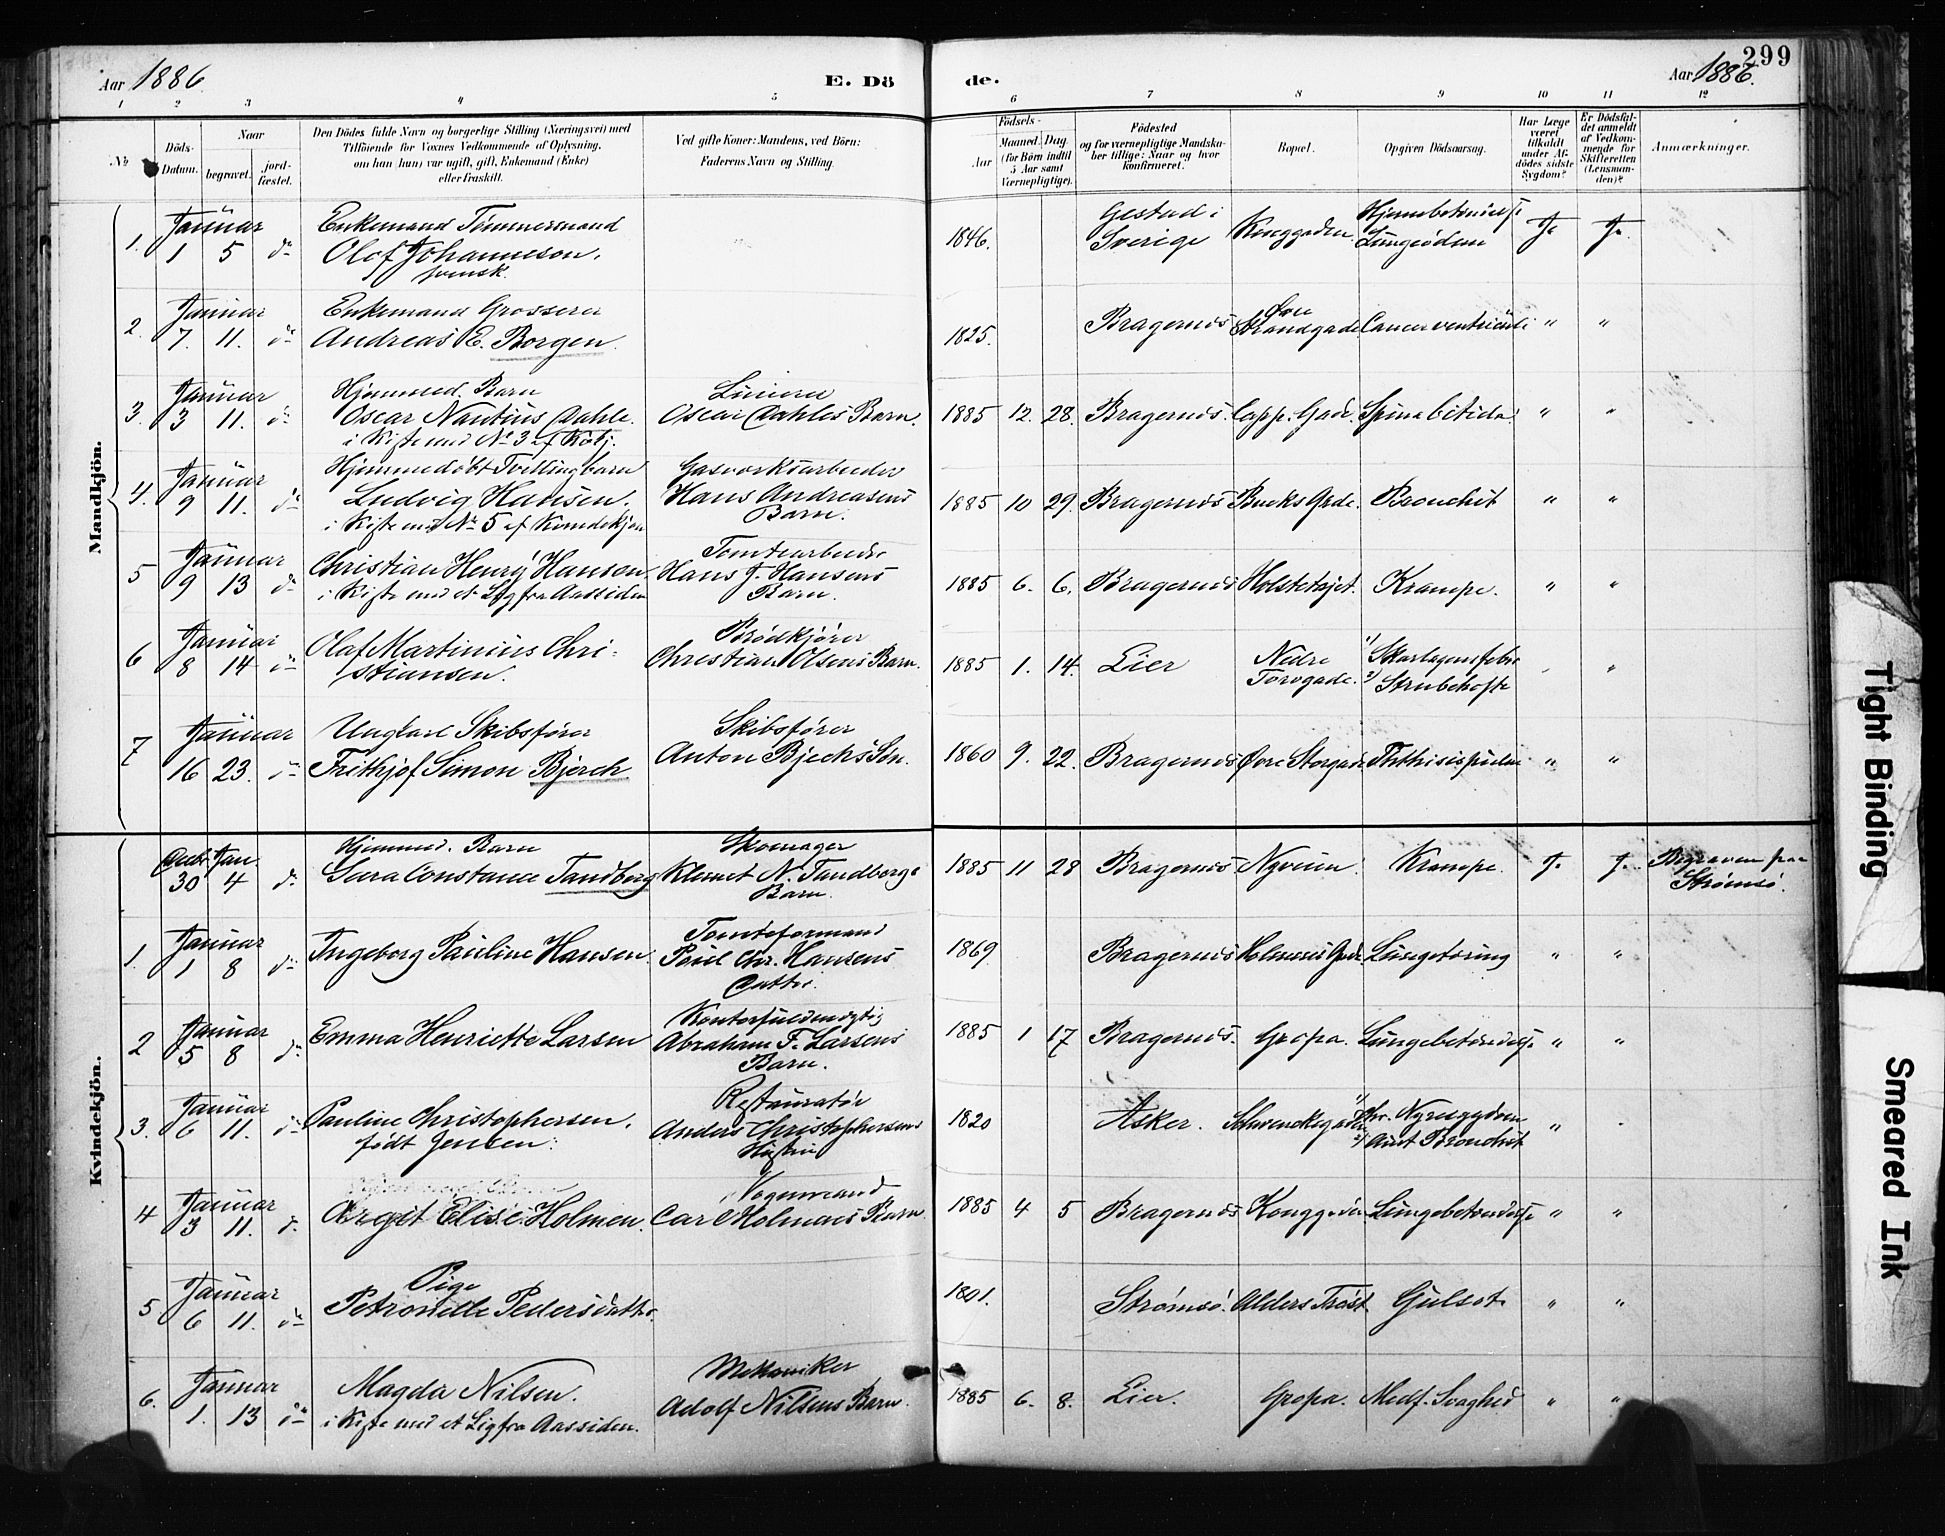 Aar 1886
E. Dö
de.
299
Aar 1886.
1 2 3 4 5 6 7 8 9 10 11 12
No
Döds-Datum.
Naar
begravet.
jord-fæstet.
Den Dödes fulde Navn og borgerlige Stilling (Næringsvei) med
Tilföiende for Voxnes Vedkommende af Oplysning,
om han (hun) var ugift, gift, Enkemand (Enke)
eller fraskilt.
Ved gifte Koner: Mandens, ved Börn:
Faderens Navn og Stilling.
Födsels-
Aar
Maaned Dag
(for Börn indtil
5 Aar samt
Værnepligtige).
Födested
og for værnepligtige Mandska-
ber tillige: Naar og hvor
konfirmeret.
Bopæl.
Opgiven Dödsaarsag.
Har Læge
været
tilkaldt
under Af-
dödes sidste
Sygdom?
Er Dödsfal-
det anmeldt
af Vedkom-
mende for
Skifteretten
(Lensman-
den)?
Anmærkninger.
Mandkjön.
1. Januar 1 5 do Enkemand Tømmermand
Olof Johanneson.
svensk.
1846. Gestad i
Sverige Konggaden Hjernebetændelse
Lungeødem Ja Ja.
2. Januar 7. 11. do Enkemand Grosserer
Andreas E. Borgen.
1825. Bragernæs Øvre
Strandgade Cancer ventriculi " "
3. Januar 3 11. do Hjemmed. Barn
Oscar Nautius Dahle.
i Kiste med No 3 af Kvkj.
Oscar Dahles Barn.
1885 12. 28. Bragernæs. Capp. Gade. Spina bifida. " "
4. Januar 9 11. do Hjemmedøbt Tvillingbarn
Ludvig Hansen.
i Kiste med No 5 af Kvindekjøn
Gasverksarbeider
Hans Andreasens
Barn.
1885 10 29. Bragernæs Buchs Gade. Bronchit " "
5 Januar 9 13 do Christian Henry Hansen.
i Kiste med et Lig fra Aassiden
Tomtearbeider
Hans J. Hansens
Barn.
1885 6. 6. Bragernæs Krampe. " "
6 Januar 8 14 do Olaf Martinius Chri-
stiansen.
Brødkjører
Christian Olsens Barn.
1885 1. 14. Lier Nedre
Torvgade. 1) Skarlagensfeber
2) Strubehoste "
7 Januar 16 23. do Ungkarl Skibsfører
Frithjof Simon Bjerck
Skibsfører
Anton Bjercks Søn.
1860 9. 22. Bragernæs Øvre Storgade Phthisis pulm " "
Kvindekjön.
Decbr 30 Jan. 4 do Hjemmed. Barn
Sara Constance Tandberg
Skomager
Klemet N. Tandbergs
Barn.
1885 11 28 Bragernæs Nyveien. Krampe. J. J. Begraven paa
Strømsø.
1. Januar 1 8 do Ingeborg Pauline Hansen.
Tomteformand
Poul Chr. Hansens
Datter.
1869 Bragernæs Holmens Gade. Lungetæring " "
2 Januar 5 8 do Emma Henriette Larsen
Kontorfuldmægtig
Abraham F. Larsens
Barn.
1885 1 17 Bragernæs. Gropa. Lungebetændelse " "
3. Januar 6 11. do Pauline Christophersen,
født Jensen.
Restauratør
Anders Christophersens
Hustru
1820 Asker. Schwenckegaden 1) Chr. Nyresygdom
2) Acut Bronchit "
4 Januar 3 11. do Argit Elise Holmen.
Vognmand
Carl Holmens Barn
1885 4 5 Bragernæs Konggaden Lungebetændelse " "
5 Januar 6 11. do Pige
Petronelle Pedersdatter
1801. Strømsø. Alders Trøst Gulsot. " "
6. Januar 1. 13 do Magda Nilsen.
i Kiste med et Lig fra Aassiden.
Mekaniker
Adolf Nilsens Barn.
1885 6. 8. Lier. Gropa. Medf. Svaghed " "
Tight Binding
Smeared Ink